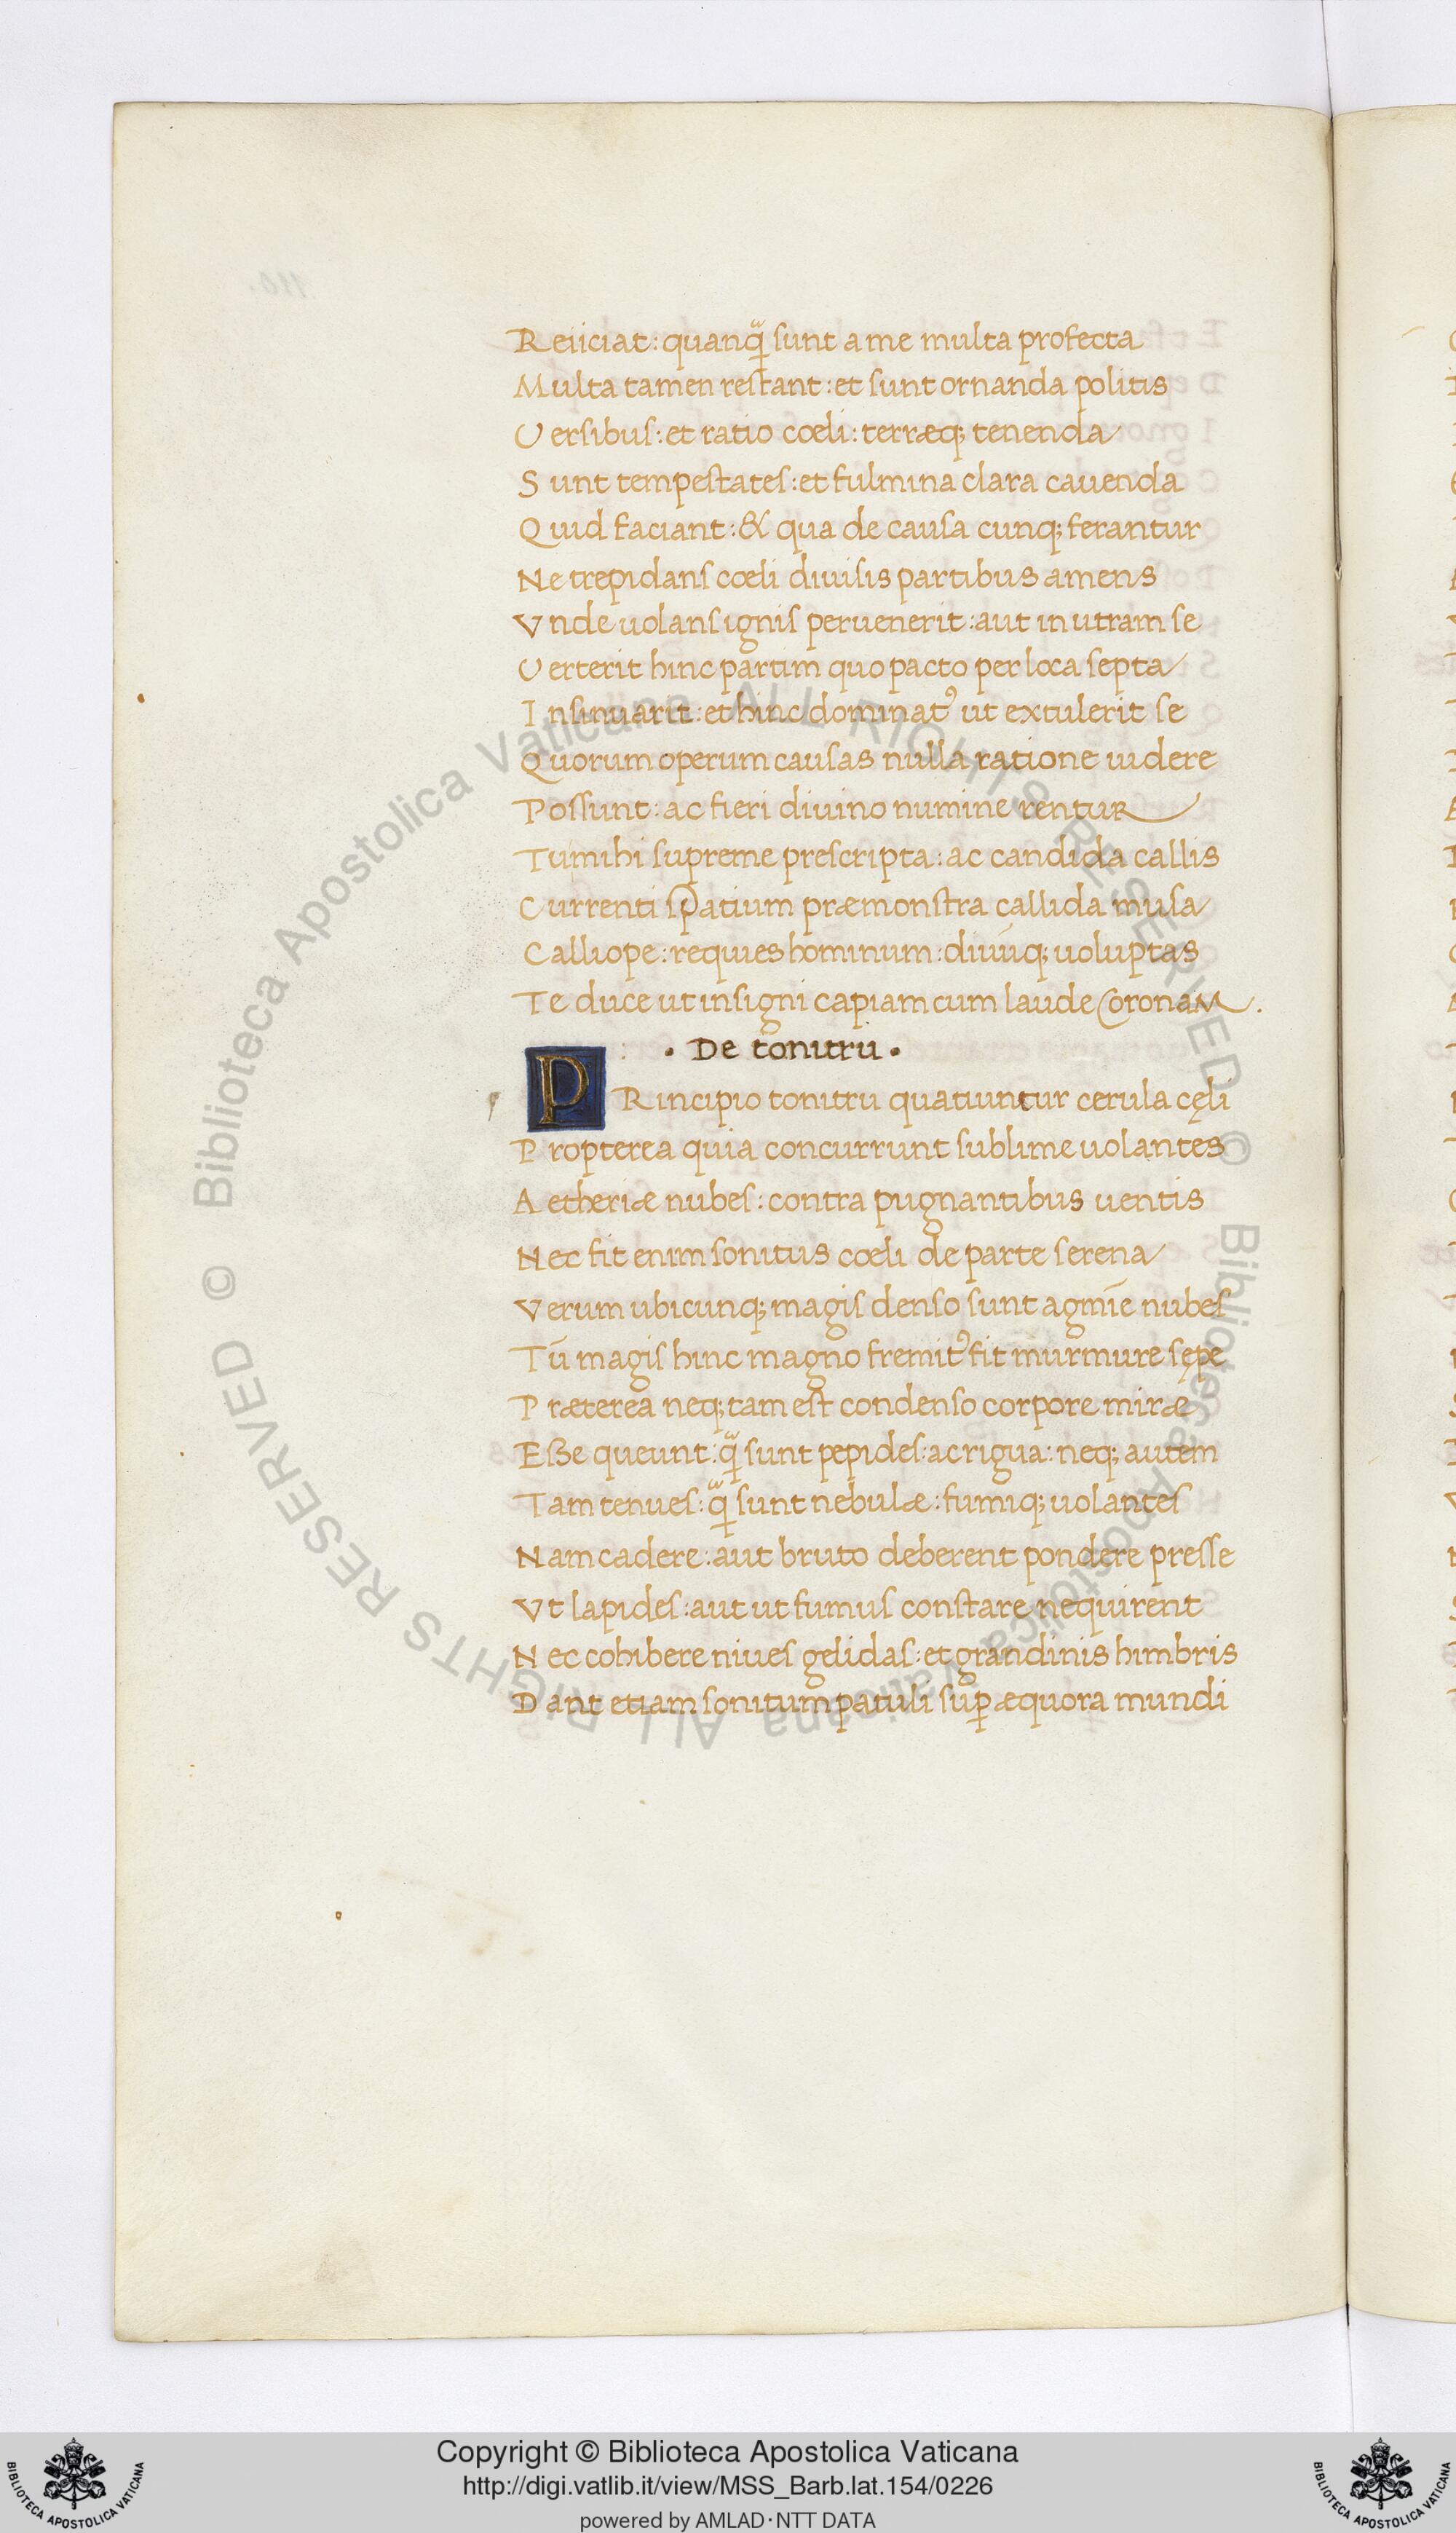 Reiiciat: quanq̃ sunt a me multa profecta
Multa tamen restant: et sunt ornanda politis
Versibus: et ratio cœli: terræq; tenenda
Sunt tempestates: et fulmina clara cauenda
Quid faciant: & qua de causa cunq; ferantur
Ne trepidans cœli diuisis partibus amens
Vnde uolans ignis peruenerit: aut in utram se
Verterit hinc partim quo pacto per loca septa
Insinuarit: et hinc dominatꝰ ut extulerit se
Quorum operum causas nulla ratione uidere
Possunt: ac fieri diuino numine rentur
Tu mihi supreme prescripta: ac candida callis
Currenti spatium præmonstra callida musa
Calliope: requies hominum: diuūq; uoluptas
Te duce ut insigni capiam cum laude Coronam.
• De tonitru •
PRincipio tonitru quatiuntur cerula cęli
Propterea quia concurrunt sublime uolantes
Aetheriæ nubes: contra pugnantibus uentis
Nec fit enim sonitus cœli de parte serena
Verum ubicunq; magis denso sunt agmīe nubes
Tū magis hinc magno fremitꝰ fit murmure sępe
Præterea neq; tam est condenso corpore miræ
Esse queunt: q̃ sunt pepides: ac rigua: neq; autem
Tam tenues: q̃ sunt nebulæ: fumiq; uolantes
Nam cadere: aut bruto deberent pondere presse
Vt lapides: aut ut fumus constare nequirent
Nec cohibere niues gelidas: et grandinis himbris
Dant etiam sonitum patuli suꝑ æquora mundi
© Biblioteca Apostolica Vaticana ALL RIGHTS RESERVED
© Biblioteca Apostolica Vaticana ALL RIGHTS RESERVED
Copyright © Biblioteca Apostolica Vaticana
http://digi.vatlib.it/view/MSS_Barb.lat.154/0226
powered by AMLAD·NTT DATA
BIBLIOTECA APOSTOLICA VATICANA
BIBLIOTECA APOSTOLICA VATICANA